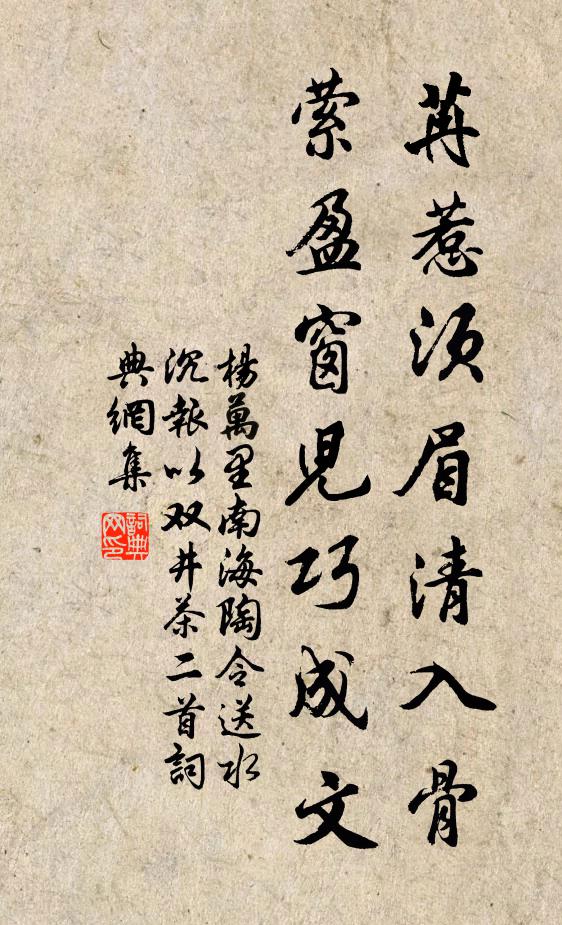 苒惹须眉清入骨
萦盈窗児巧成文
楊萬里南海陶令送水
沉報以双井茶二首詞
典網集
詞典
网印